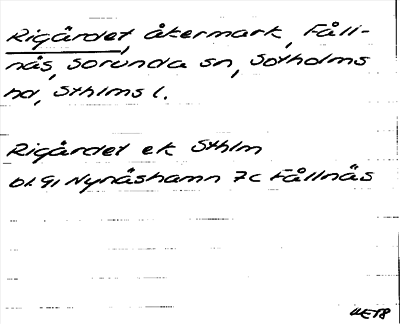 Rigårdet, åkermark, Fåll-
näs, Sorunda sn, Sotholms
hd, Sthlms l.
Rigårdet ek Sthlm
bl. 91 Nynäshamn 7c Fållnäs